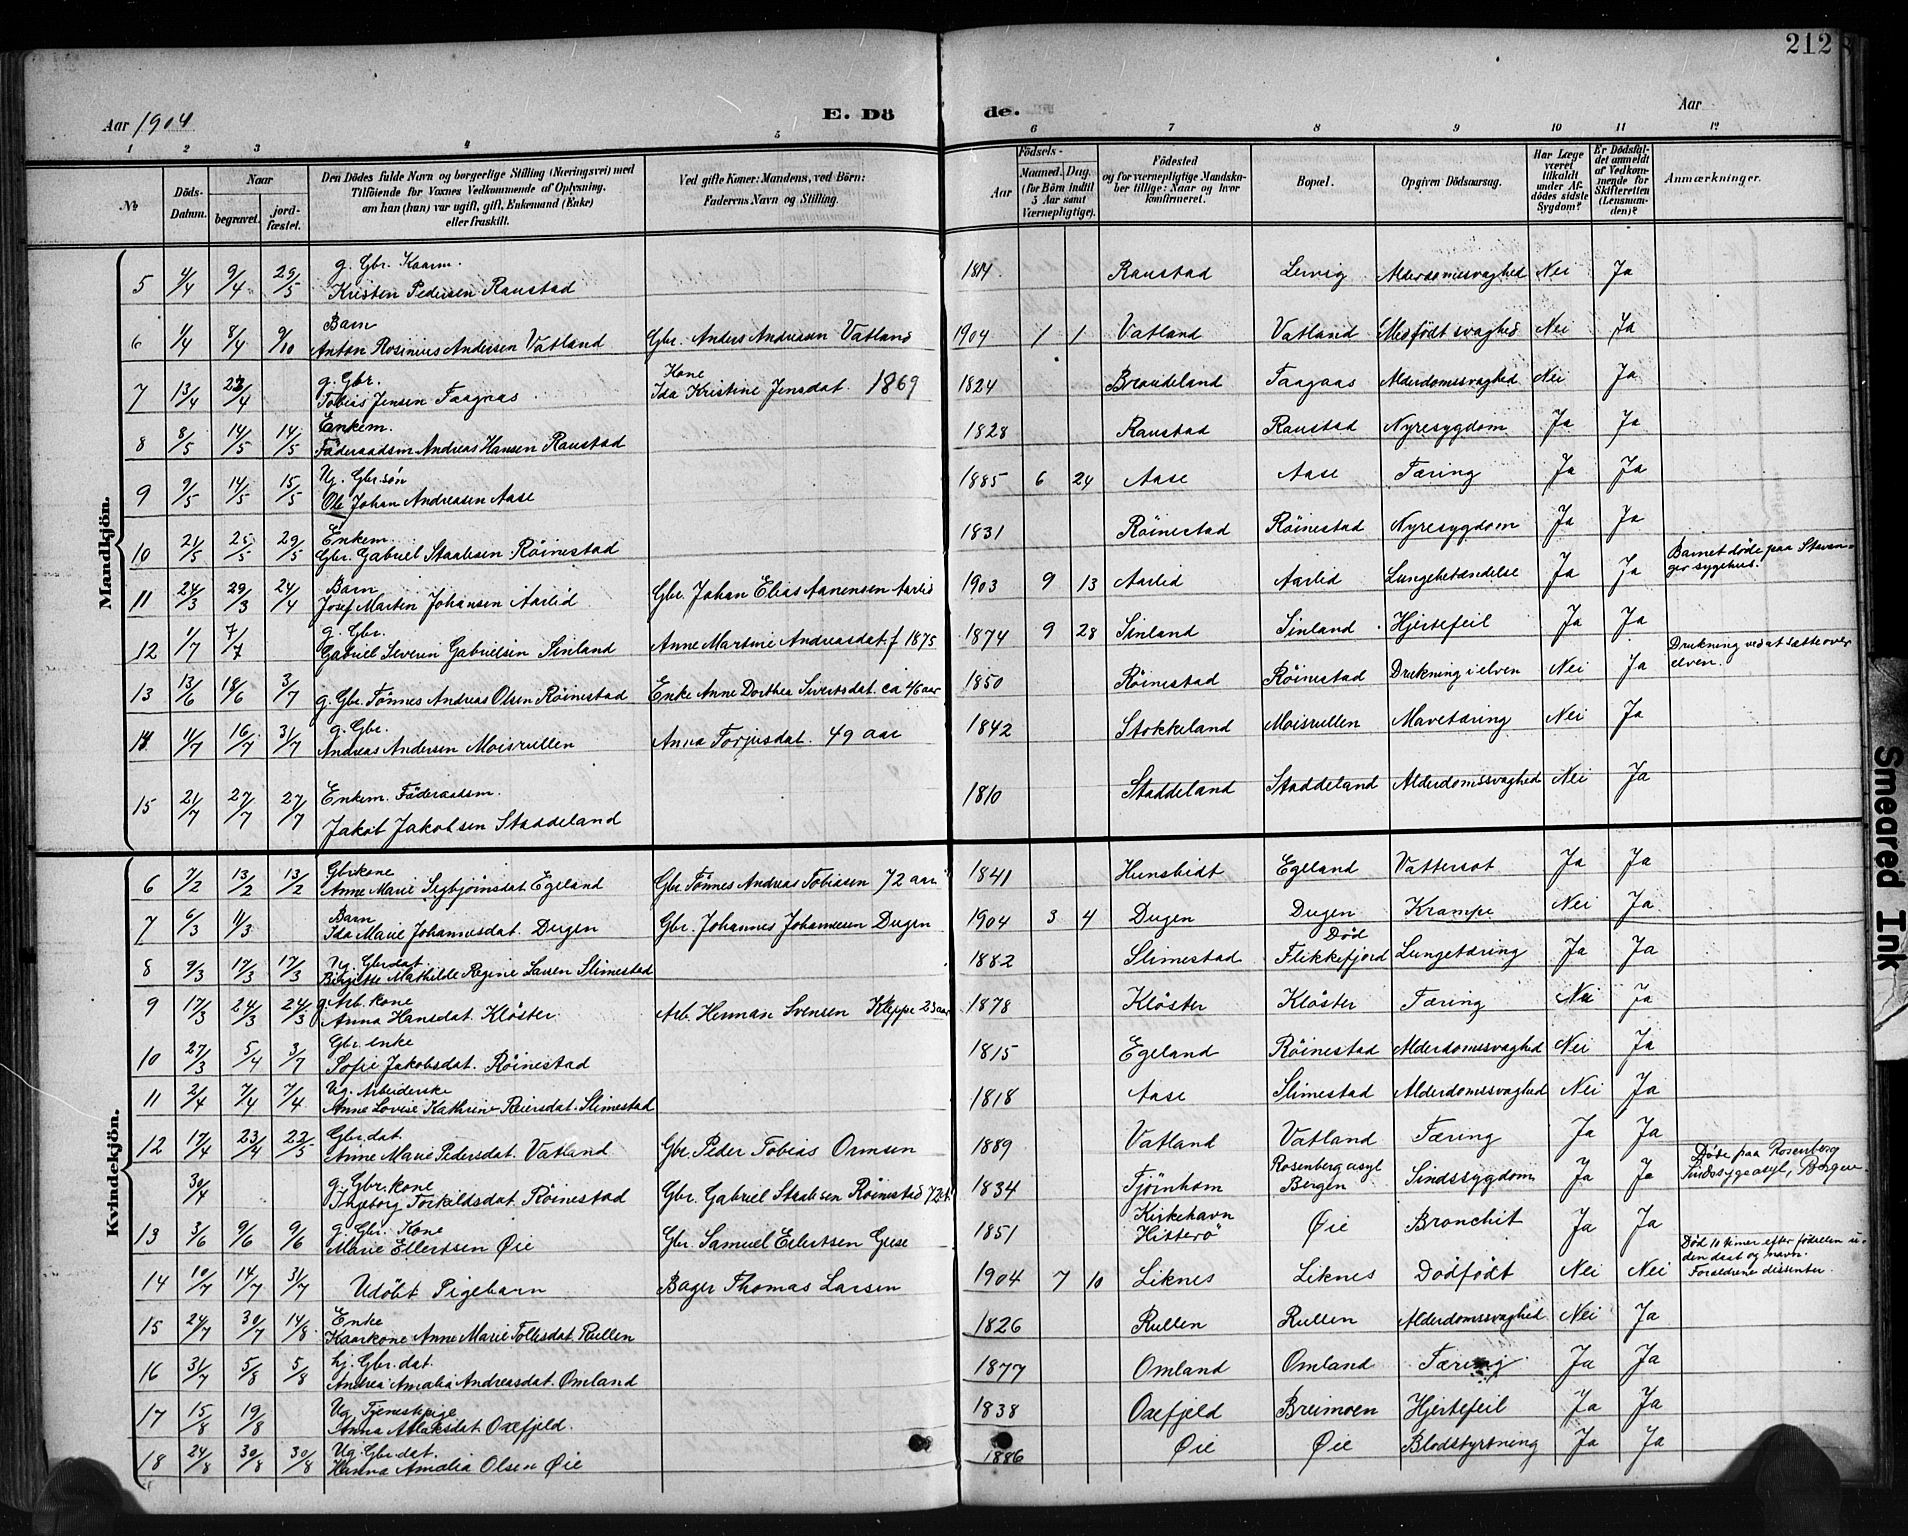 212
Aar 1904 E. Dö de. Aar
1 2 3 4 5 6 7 8 9 10 11 12
№ Döds-Datum. Naar begravet. jordfæstet. Den Dödes fulde Navn og borgerlige Stilling (Næringsvei) med Tilföiende for Voxnes Vedkommende af Oplysning, om han (hun) var ugift, gift, Enkemand (Enke) eller fraskilt. Ved gifte Koner: Mandens, ved Börn: Faderens Navn og Stilling. Födsels- Aar Maaned. Dag. (for Börn indtil 5 Aar samt Værnepligtige). Födested og for værnepligtige Mandskaber tillige: Naar og hvor konfirmeret. Bopæl. Opgiven Dödsaarsag. Har Læge været tilkaldt under Afdödes sidste Sygdom? Er Dödsfaldet anmeldt af Vedkommende for Skifteretten (Lensmanden)? Anmærkninger.
Mandkjön.
5 4/4 9/4 29/5 g. Gbr. Kaarm. Kristen Pedersen Raustad 1814 Raustad Lervig Alderdomssvaghed Nei Ja
6 1/4 8/4 9/10 Barn Anton Rosinius Andersen Vatland Gbr. Anders Andreasen Vatland 1904 1 1 Vatland Vatland Medfödt svaghed Nei Ja
7 13/4 23/4 g. Gbr. Tobias Jensen Faagaas Kone Ida Kristine Jensdat. 1869 1824 Braudeland Faagaas Alderdomssvaghed Nei Ja
8 8/5 14/5 14/5 Enkem. Föderaadsm Andreas Hansen Raustad 1828 Raustad Raustad Nyresygdom Ja Ja
9 9/5 14/5 15/5 Ug. Gbr.søn Ole Johan Andreasen Aase 1885 6 24 Aase Aase Tæring Ja Ja
10 21/5 25/5 29/5 Enkem. Gbr. Gabriel Staalesen Röinestad 1831 Röinestad Röinestad Nyresygdom Ja Ja
11 24/3 29/3 24/4 Barn Josef Marten Johansen Aarlid Gbr. Johan Elias Aanensen Aarlid 1903 9 13 Aarlid Aarlid Lungebetændelse Ja Ja Barnet döde paa Stavanger sygehus.
12 1/7 7/7 g. Gbr. Gabriel Severin Gabrielsen Sinland Anne Martine Andreasdat. f 1875 1874 9 28 Sinland Sinland Hjertefeil Ja Ja
13 13/6 18/6 3/7 g. Gbr. Tönnes Andreas Olsen Röinestad Enke Anne Dorthea Sivertsdat. ca 46 aar 1850 Röinestad Röinestad Drukning i elven Nei Ja Drukning ved at sætte over elven.
14 11/7 16/7 31/7 g. Gbr. Andreas Andersen Moisrullen Anna Torjusdat. 49 aar 1842 Stokkeland Moisrullen Mavetæring Nei Ja
15 21/7 27/7 27/7 Enkem. Föderaadsm. Jakob Jakobsen Staddeland 1810 Staddeland Staddeland Alderdomssvaghed Nei Ja
Kvindekjön.
6 7/2 13/2 13/2 Gbrkone Anne Marie Sigbjörnsdat Egeland Gbr. Tönnes Andreas Tobiasen 72 aar 1841 Hunsbidt Egeland Vattersot Ja Ja
7 6/3 11/3 Barn Ida Marie Johannesdat. Dugen Gbr. Johannes Johannesen Dugen 1904 3 4 Dugen Dugen Krampe Nei Ja
8 9/3 17/3 17/3 Ug. Gbrdat. Birgitte Mathilde Regine Larsen Slimestad 1882 Slimestad Död Flikkefjord Lungetæring Ja Ja
9 17/3 24/3 24/3 g. Arb. kone Anna Hansdat. Klöster Arb. Herman Svensen Kleppe 23 aar 1878 Klöster Klöster Tæring Nei Ja
10 27/3 5/4 3/7 Gbr. enke Sofie Jakobsdat. Röinestad 1815 Egeland Röinestad Alderdomssvaghed Nei Ja
11 2/4 7/4 7/4 Ug. Arbeiderske Anne Lovise Kathrine Reiersdat. Slimestad 1818 Aase Slimestad Alderdomssvaghed Nei Ja
12 17/4 23/4 22/5 Gbr. dat. Anne Marie Pedersdat. Vatland Gbr. Peder Tobias Ormsen 1889 Vatland Vatland Tæring Ja Ja
30/4 g. Gbr. kone Ingeborg Torkildsdat. Röinestad Gbr. Gabriel Staalesen Röinestad 72 1834 Fjörnham Rosenberg asyl Bergen Sindssygdom Ja Ja Döde paa Rosenberg Sindssygeasyl, Bergen
13 3/6 9/6 9/6 g. Gbr. Kone Marie Ellertsen Øie Gbr. Samuel Eilertsen Giese 1851 Kirkehavn Hitterö Øie Bronchit Ja Ja
14 10/7 14/7 31/7 Udöbt Pigebarn Bager Thomas Larsen 1904 7 10 Liknes Liknes Dödfödt Nei Nei Död 10 timer efter födselen uden daab og navn. Forældrene dissenter.
15 24/7 30/7 14/8 Enke Kaarkone Anne Marie Tollesdat. Rullen 1826 Rullen Rullen Alderdomssvaghed Nei Ja
16 31/7 5/8 5/8 Gbr. dat. Andrea Amalia Andreasdat. Omland 1877 Omland Omland Tæring Ja Ja
17 15/8 19/8 Ug. Tjenestpige Anna Atlaksdat. Oxefjeld. 1838 Oxefjeld Breimoen Hjertefeil Ja Ja
18 24/8 30/8 30/8 Ug. Gbr. dat. Hanna Amalia Olsen Øie 1886 Øie Øie Blodstyrtning Ja Ja
Smeared Ink